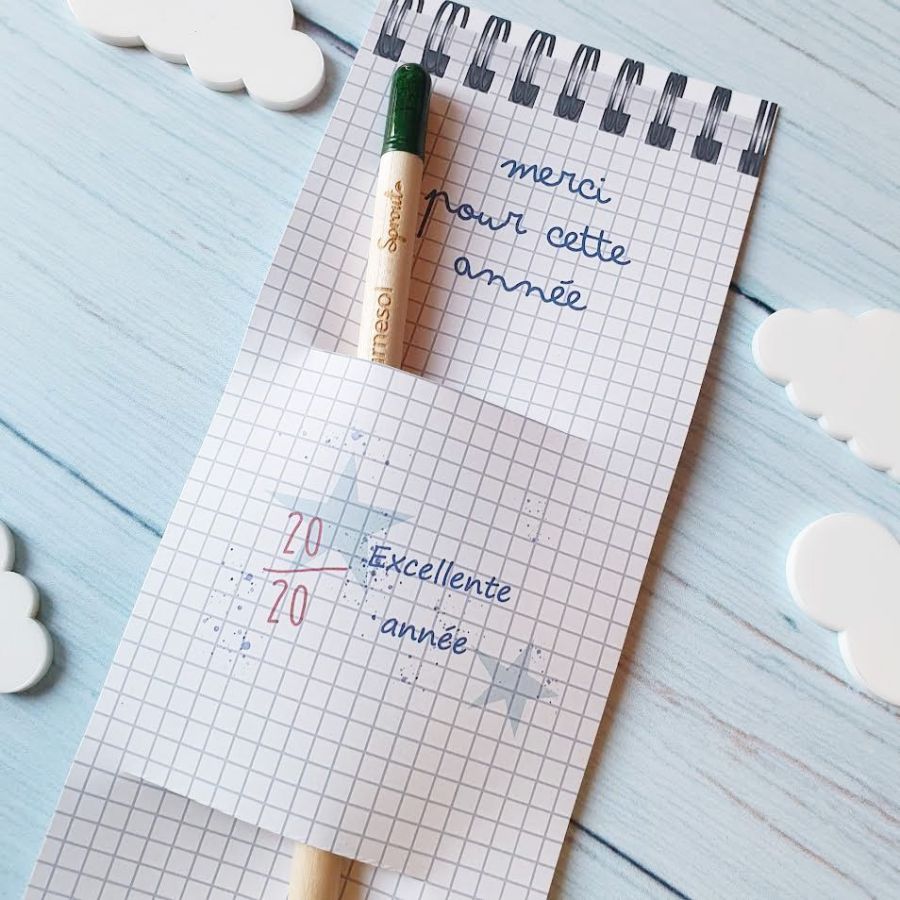 merci
pour cette
année
Sprout
20
20
Excellente
année